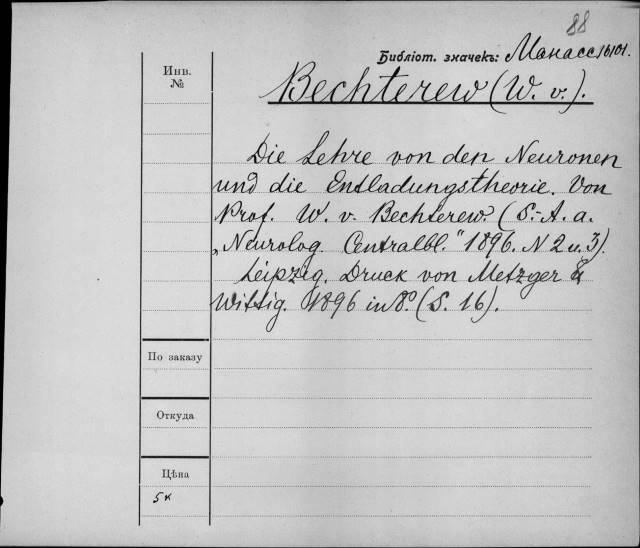 88
Библіот. значекъ: Манасс 16101.
Инв.
№
Bechterew (W. v.).
Die Lehre von den Neuronen
und die Entladungstheorie. Von
Prof. W. v. Bechterew. (S.-A. a.
„Neurolog. Centralbl." 1896. N 2 u. 3).
Leipzig. Druck von Metzger &
Wittig. 1896 in 8º. (S. 16).
По заказу
Откуда
Цѣна
5 к